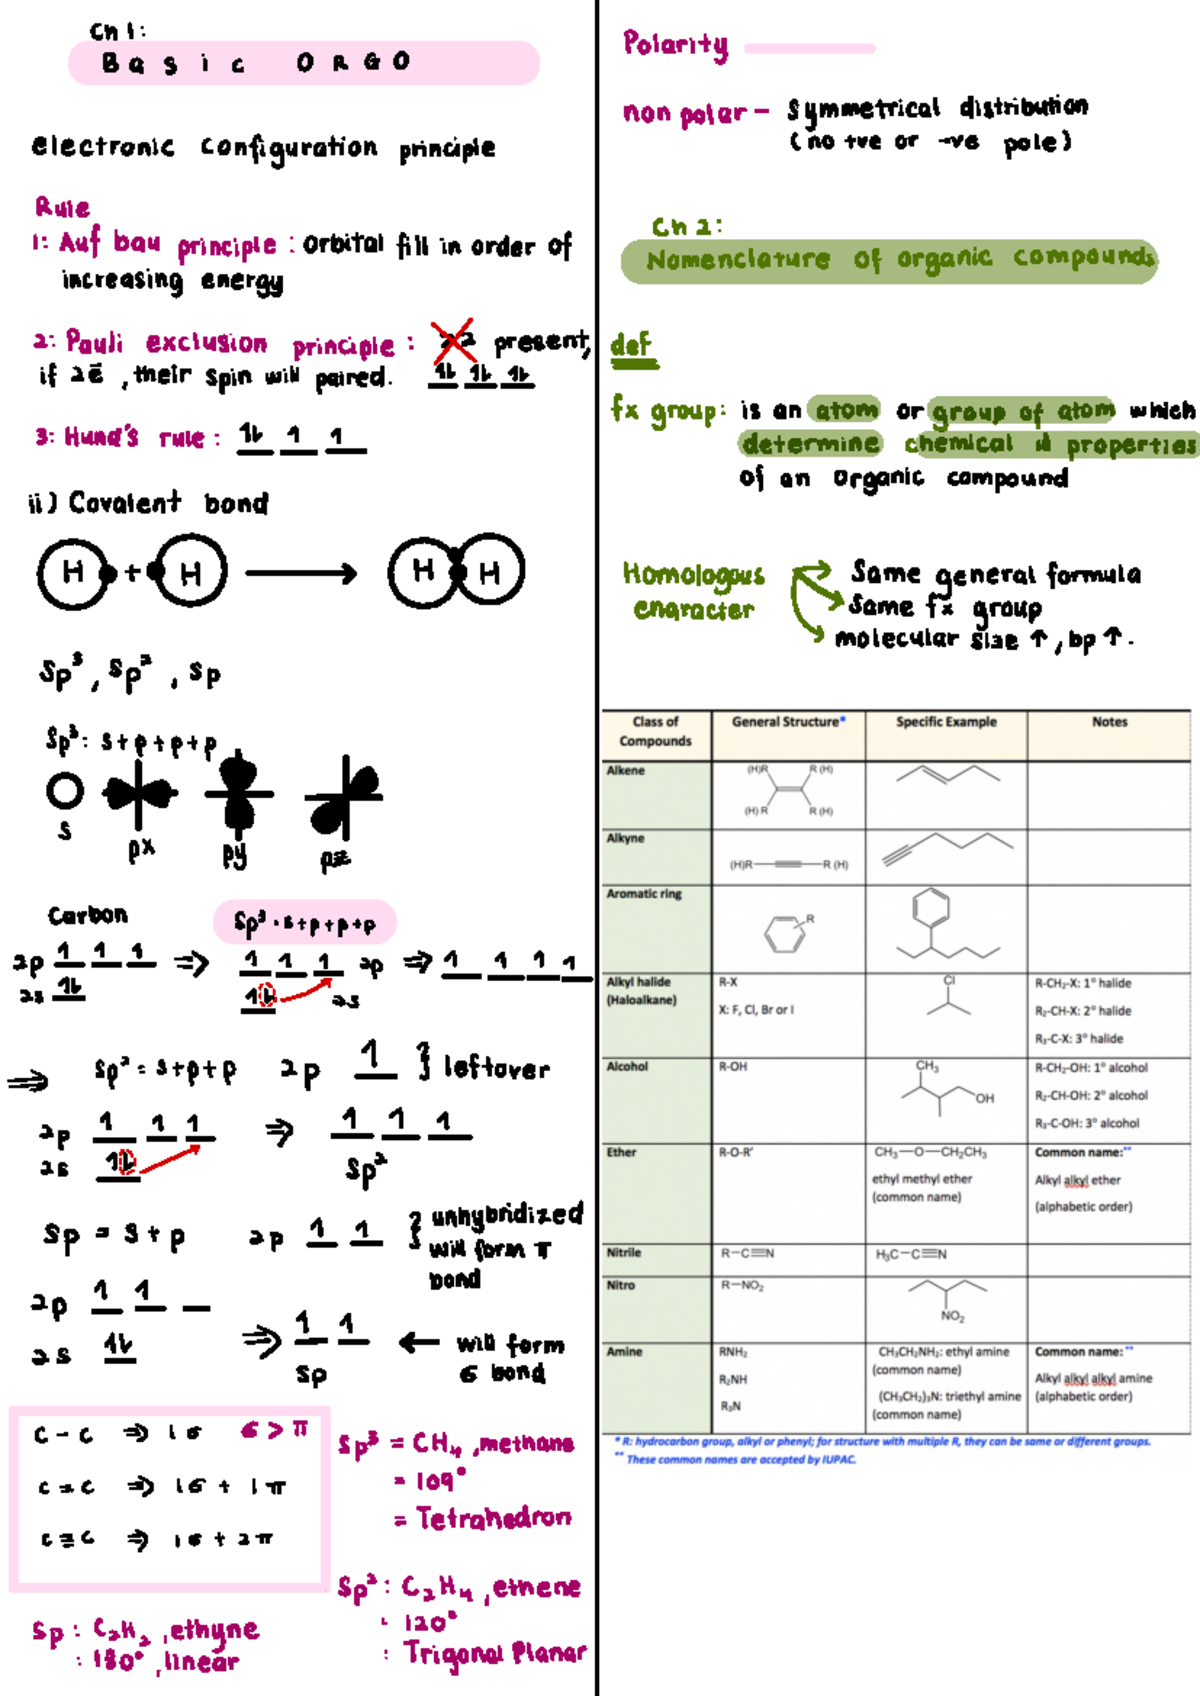 Ch 1:
Basic ORGO
electronic configuration principle
Rule
1: Auf bau principle : Orbital fill in order of
increasing energy
2: Pauli exclusion principle : present,
if 2ē , their spin will paired. 1L 1L 1L
3: Hund's rule : 1L 1 1
ii) Covalent bond
H + H H H
Sp³, Sp², Sp
Sp³: s+p+p+p
s px py pz
Carbon
Sp³ · s+p+p+p
2p 1 1 1 ⇒ 1 1 1 2p ⇒ 1 1 1 1
2s 1L 1L 2s
⇒ Sp² = s+p+p 2p 1 } leftover
2p 1 1 1 ⇒ 1 1 1
2s 1L Sp²
Sp = s+p 2p 1 1 } unhybridized
will form π
bond
2p 1 1
2s 1L ⇒ 1 1 ← will form
Sp σ bond
C-C ⇒ 1σ σ > π
C=C ⇒ 1σ + 1π
C≡C ⇒ 1σ + 2π
Sp³ = CH₄, methane
= 109°
= Tetrahedron
Sp² : C₂H₄, ethene
: 120°
: Trigonal Planar
Sp : C₂H₂, ethyne
: 180°, linear
Polarity
non polar – Symmetrical distribution
(no +ve or -ve pole)
Ch 2:
Nomenclature of organic compounds
def
fx group: is an atom or group of atom which
determine chemical properties
of an organic compound
Homologous
character
Same general formula
Same fx group
molecular size ↑, bp ↑.
Class of Compounds General Structure* Specific Example Notes
Alkene (H)R R(H) (H)R R(H)
Alkyne (H)R R(H)
Aromatic ring R
Alkyl halide (Haloalkane) R-X Cl R-CH₂-X: 1° halide
X: F, Cl, Br or I R₂-CH-X: 2° halide
R₃-C-X: 3° halide
Alcohol R-OH CH₃ OH R-CH₂-OH: 1° alcohol
R₂-CH-OH: 2° alcohol
R₃-C-OH: 3° alcohol
Ether R-O-R' CH₃—O—CH₂CH₃ Common name:**
ethyl methyl ether Alkyl alkyl ether
(common name) (alphabetic order)
Nitrile R–C≡N H₃C–C≡N
Nitro R—NO₂ NO₂
Amine RNH₂ CH₃CH₂NH₂: ethyl amine Common name:**
(common name)
R₂NH Alkyl alkyl alkyl amine
R₃N (CH₃CH₂)₃N: triethyl amine (alphabetic order)
(common name)
* R: hydrocarbon group, alkyl or phenyl; for structure with multiple R, they can be same or different groups.
** These common names are accepted by IUPAC.